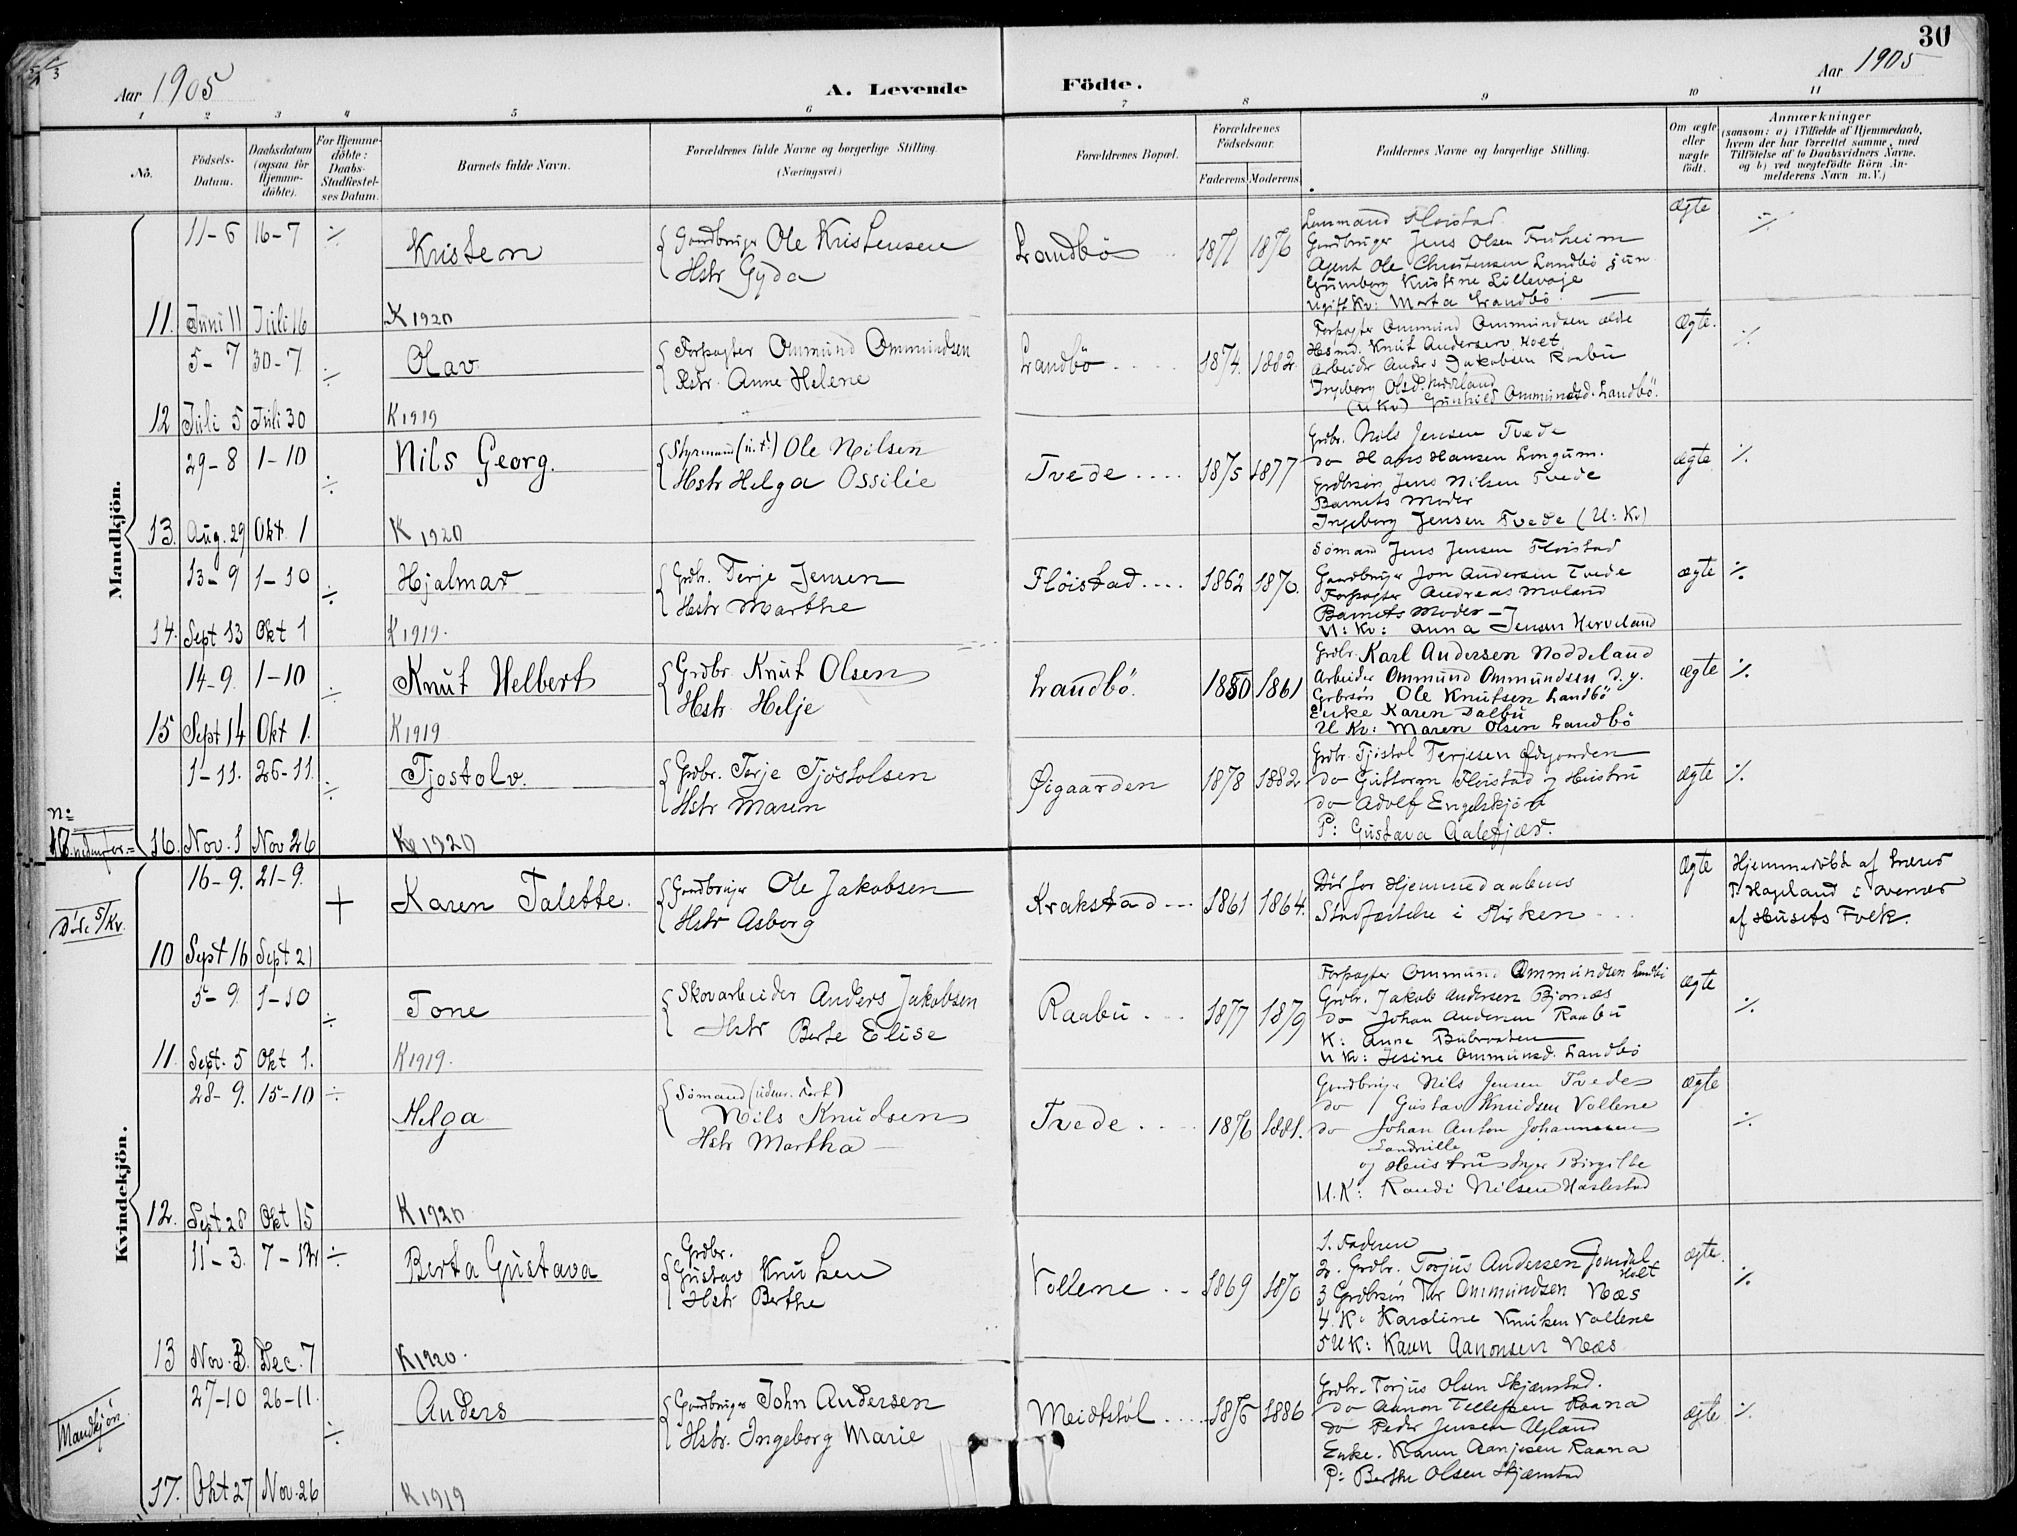 30
Aar 1905
A. Levende Födte.
Aar 1905
1 2 3 4 5 6 7 8 9 10 11
No.
Födsels-Datum.
Daabsdatum (ogsaa for Hjemme-döbte).
For Hjemme-döbte: Daabs-Stadfæstel-ses Datum.
Barnets fulde Navn.
Forældrenes fulde Navne og borgerlige Stilling.
(Næringsvei)
Forældrenes Bopæl.
Forældrenes Födselsaar.
Faderens Moderens
Faddernes Navne og borgerlige Stilling.
Om ægte eller uægte født.
Anmærkninger
(saasom: a) i Tilfælde af Hjemmedaab,
hvem der har forrettet samme, med
Tilföielse af to Daabsvidners Navne.
og b) ved uægtefödte Börn An-
melderens Navn m.V.)
Mandkjön.
11-6 16-7 ÷ Kristen
Gaardbruger Ole Kristensen
Hstr Gyda
Landbö 1871 1876
Lensmand Floistad
Gaardbruger Jens Olsen Froheim
Agent Ole Christensen Landbö jun
Gunborg Kristine Lillevaje
Ugift Kv: Marta Landbö
Ægte ÷
11. Juni 11 Juli 16 K 1920
5-7 30-7 ÷ Olav
Forpagter Ommund Ommundsen
Hstr. Anne Helene
Landbö 1874. 1882
Forpagter Ommund Ommundsen ældre
Hsmd. Knut Andersen Holt
Arbeider Anders Jakobsen Raabu
Ingeborg Olsd.
(U Kv) Gunhild Ommundsd. Landbö.
Ægte. ÷
12 Juli 5 Juli 30 K 1919
29-8 1-10 ÷ Nils Georg.
Styrmand (u.f.) Ole Nilsen
Hstr Helga Ossilie
Tvede 1875 1877
Grdbr. Nils Jensen Tvede
do Hans Hansen Longum.
Grdbrsön Jens Nilsen Tvede
Barnets Moder
Ingeborg Jensen Tvede (U: Kv)
ægte ÷
13. Aug. 29 Okt 1 K 1920
13-9 1-10 ÷ Hjalmar
Grdbr. Terje Jensen
Hstr Marthe
Flöistad 1862 1870.
Sömand Jens Jensen Floistad
Gaardbruger Jon Andersen Tvede
Forpagter Andreas Moland
Barnets Moder
U: Kv: Anna Jensen Herveland
ægte ÷
14. Sept 13 Okt 1 K 1919.
14-9. 1-10 ÷ Knut Helbert
Grdbr. Knut Olsen
Hstr. Helje
Landbö. 1850 1861
Grdbr. Karl Andersen Noddeland
Arbeider Ommund Ommundsen d.y.
Grbrsön Ole Knutsen Landbö
Enke Karen Dalbu
U Kv: Maren Olsen Landbö
ægte ÷
15 Sept 14 Okt 1. K 1919
1-11. 26-11. ÷ Tjostolv.
Grdbr. Terje Tjöstolsen
Hstr Maren
Øigaarden 1878 1882
Grdbr. Tjöstol Terjesen Ødegaarden
do Guttorm Floistad og Hustru
do Adolf Engelskjön
P: Gustava Aalefjær.
Ægte ÷
No 17 nedenfor.= 16. Nov. 1 Nov 26 K 1920
Kvindekjön.
Död 5/Kv.
16-9. 21-9. + Karen Talette.
Gaardbruger Ole Jakobsen
Hstr Asborg
Krakstad 1861 1864.
Död for Hjemmedaabens
Stadfæstelse i Kirken
Ægte
Hjemmedöbt af Lærer
T. Hageland i overvær
af Husets Folk.
10 Sept 16 Sept 21
5-9. 1-10 ÷ Tone
Skovarbeider Anders Jakobsen
Hstr Berte Elise
Raabu 1877 1879
Forpagter Ommund Ommundsen Landbö
Grdbr. Jakob Andersen Bjornæs
do Johan Andersen Raabu
K: Anne Bubraaten
U Kv: Jesine Ommunsd. Landbö
ægte ÷
11. Sept. 5 Okt 1. K 1919.
28-9. 15-10 ÷ Helga
Sömand (udenr. Fart)
Nils Knudsen
Hstr Martha
Tvede 1876 1881.
Gaardbruger Nils Jensen Tvede
do Gustav Knudsen Vollene
do Johan Anton Johannesen
Landville
og Hustru Inger Birgithe
U.K: Randi Nilsen Haslestad
ægte ÷
12. Sept 28 Okt 15 K 1920
11-3. 7-12 ÷ Berta Gustava
Grdbr.
Gustav Knutsen
Hstr Berthe
Vollene 1869 1870
1. Faderen
2. Grdbr. Torjus Andersen Jomdal
Holt
3 Grdbrsön Tor Ommundsen Næs
4. K: Karoline Knutsen Vollene
5 U K: Karen Aanonsen Næs
ægte. ÷
13 Nov. 3. Dec. 7 K 1920.
Mandkjön
27-10 26-11. ÷ Anders
Gaardbruger John Andersen
Hstr. Ingeborg Marie
Meidtstöl 1876 1886
Grdbr. Torjus Olsen Skjærstad.
do Aanon Tellefsen Raana
do Peder Jensen Ugland
Enke. Karen Aanjesen Raana
P: Berthe Olsen Skjærstad
ægte ÷
17. Okt 27 Nov. 26 K 1919